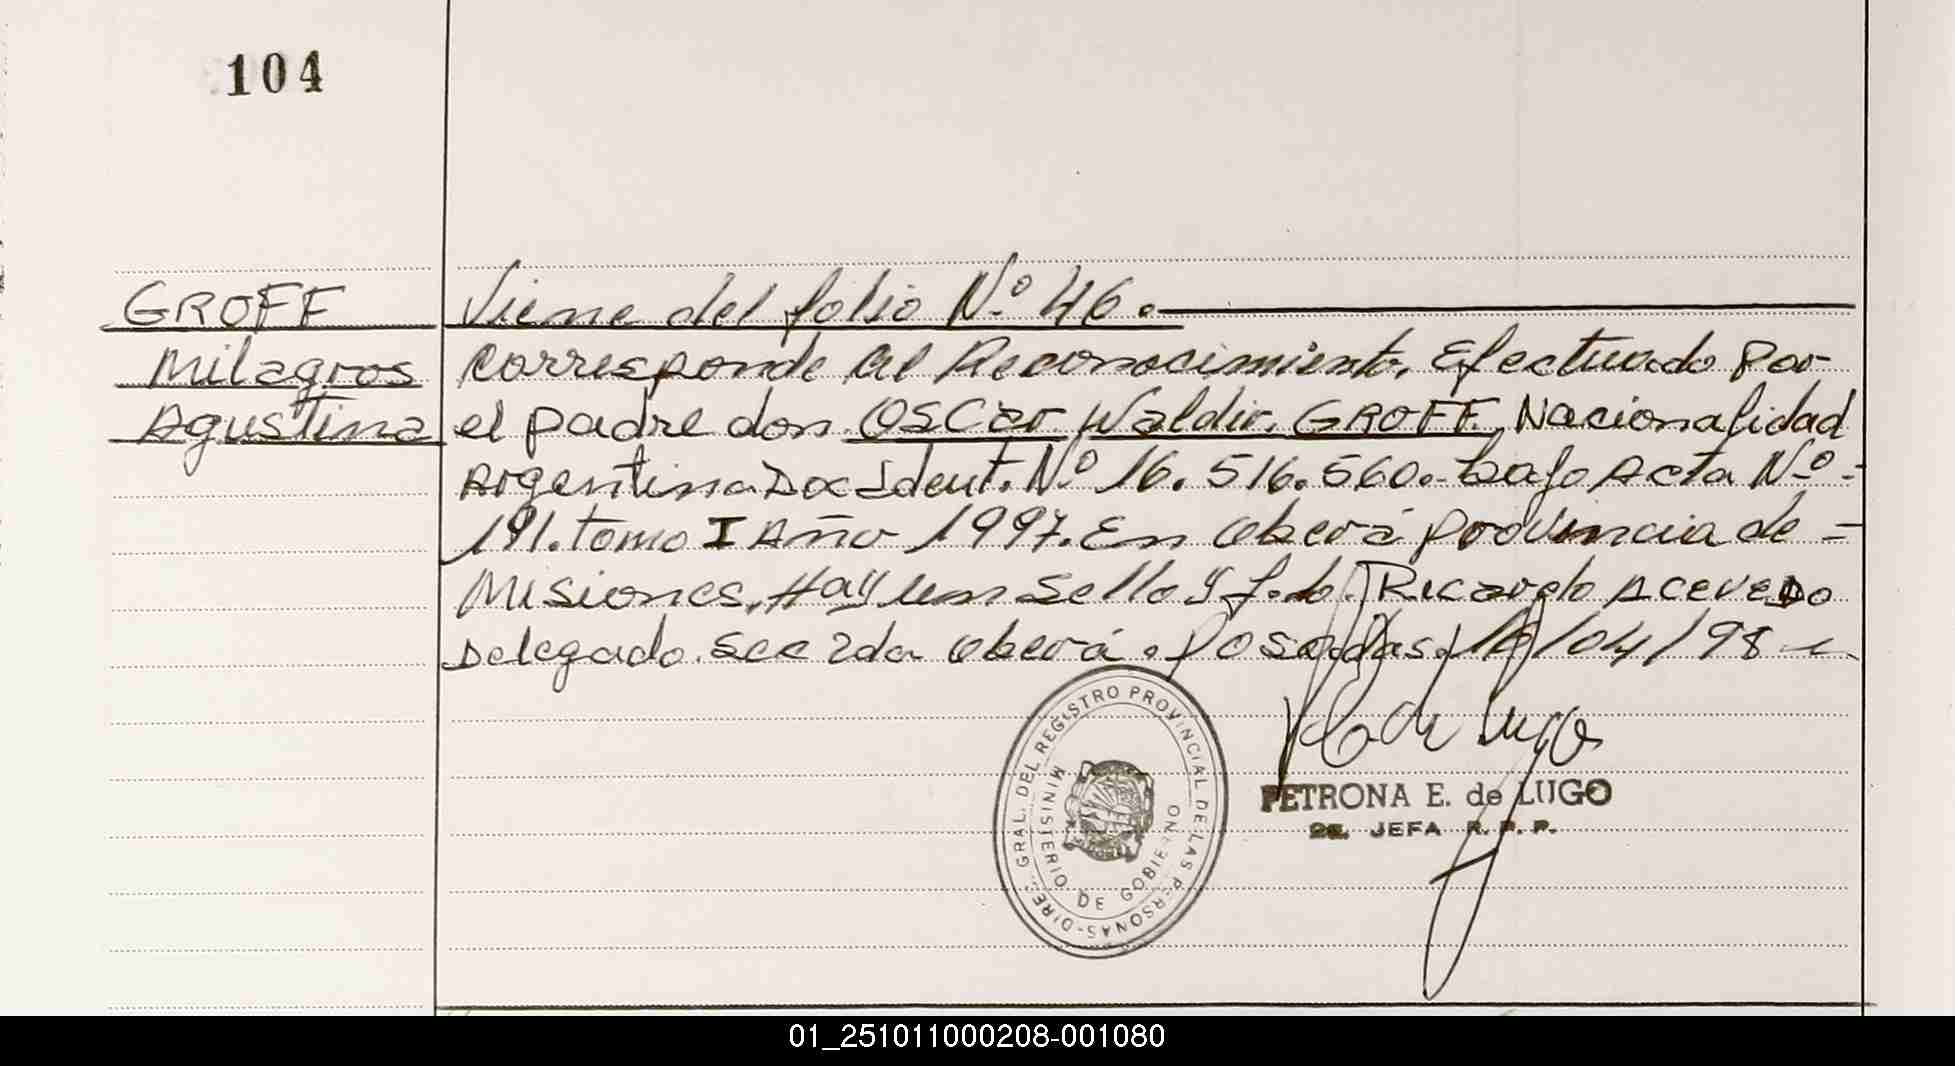 104
GROFF
Milagros
Agustina
Viene del folio Nº 46.
Corresponde al Reconocimiento, Efectuado Por
el padre don OSCar Waldir, GROFF, Nacionalidad
Argentina Doc Ident. Nº 16.516.560.- bajo Acta Nº -
191. tomo I Año 1997. En Oberá provincia de =
Misiones, Hay un Sello y f.do. Ricardo Acevedo
Delegado. Sec 2da Oberá. Posadas, /04/98
DIREC. GRAL. DEL REGISTRO PROVINCIAL DE LAS PERSONAS-
MINISTERIO DE GOBIERNO
de Lugo
PETRONA E. de LUGO
2a. JEFA R. P. P.
01_251011000208-001080